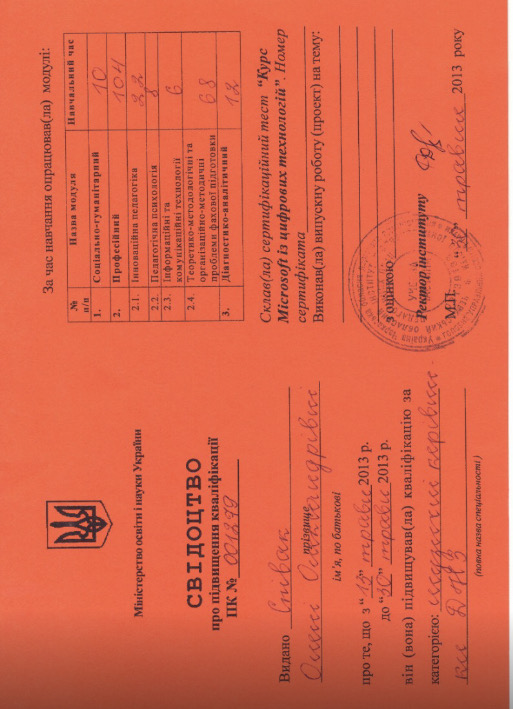 Міністерство освіти і науки України
СВІДОЦТВО
про підвищення кваліфікації
ПК № 001279
Видано Співак
прізвище
Олені Олександрівні
ім'я, по батькові
про те, що з “13” травня 2013 р.
до “30” травня 2013 р.
він (вона) підвищував(ла) кваліфікацію за
категорією: музичні керівни-
ки ДНЗ
(повна назва спеціальності)
За час навчання опрацював(ла) модулі:
№ п/п Назва модуля Навчальний час
1. Соціально-гуманітарний 10
2. Професійний 104
2.1. Інноваційна педагогіка 22
2.2. Педагогічна психологія 8
2.3. Інформаційні та
комунікаційні технології 6
2.4. Теоретико-методологічні та
організаційно-методичні
проблеми фахової підготовки 68
3. Діагностико-аналітичний 12
Склав(ла) сертифікаційний тест “Курс
Microsoft із цифрових технологій”. Номер
сертифіката
Виконав(ла) випускну роботу (проект) на тему:
з оцінкою
Ректор інституту
М.П. “30” травня 2013 року